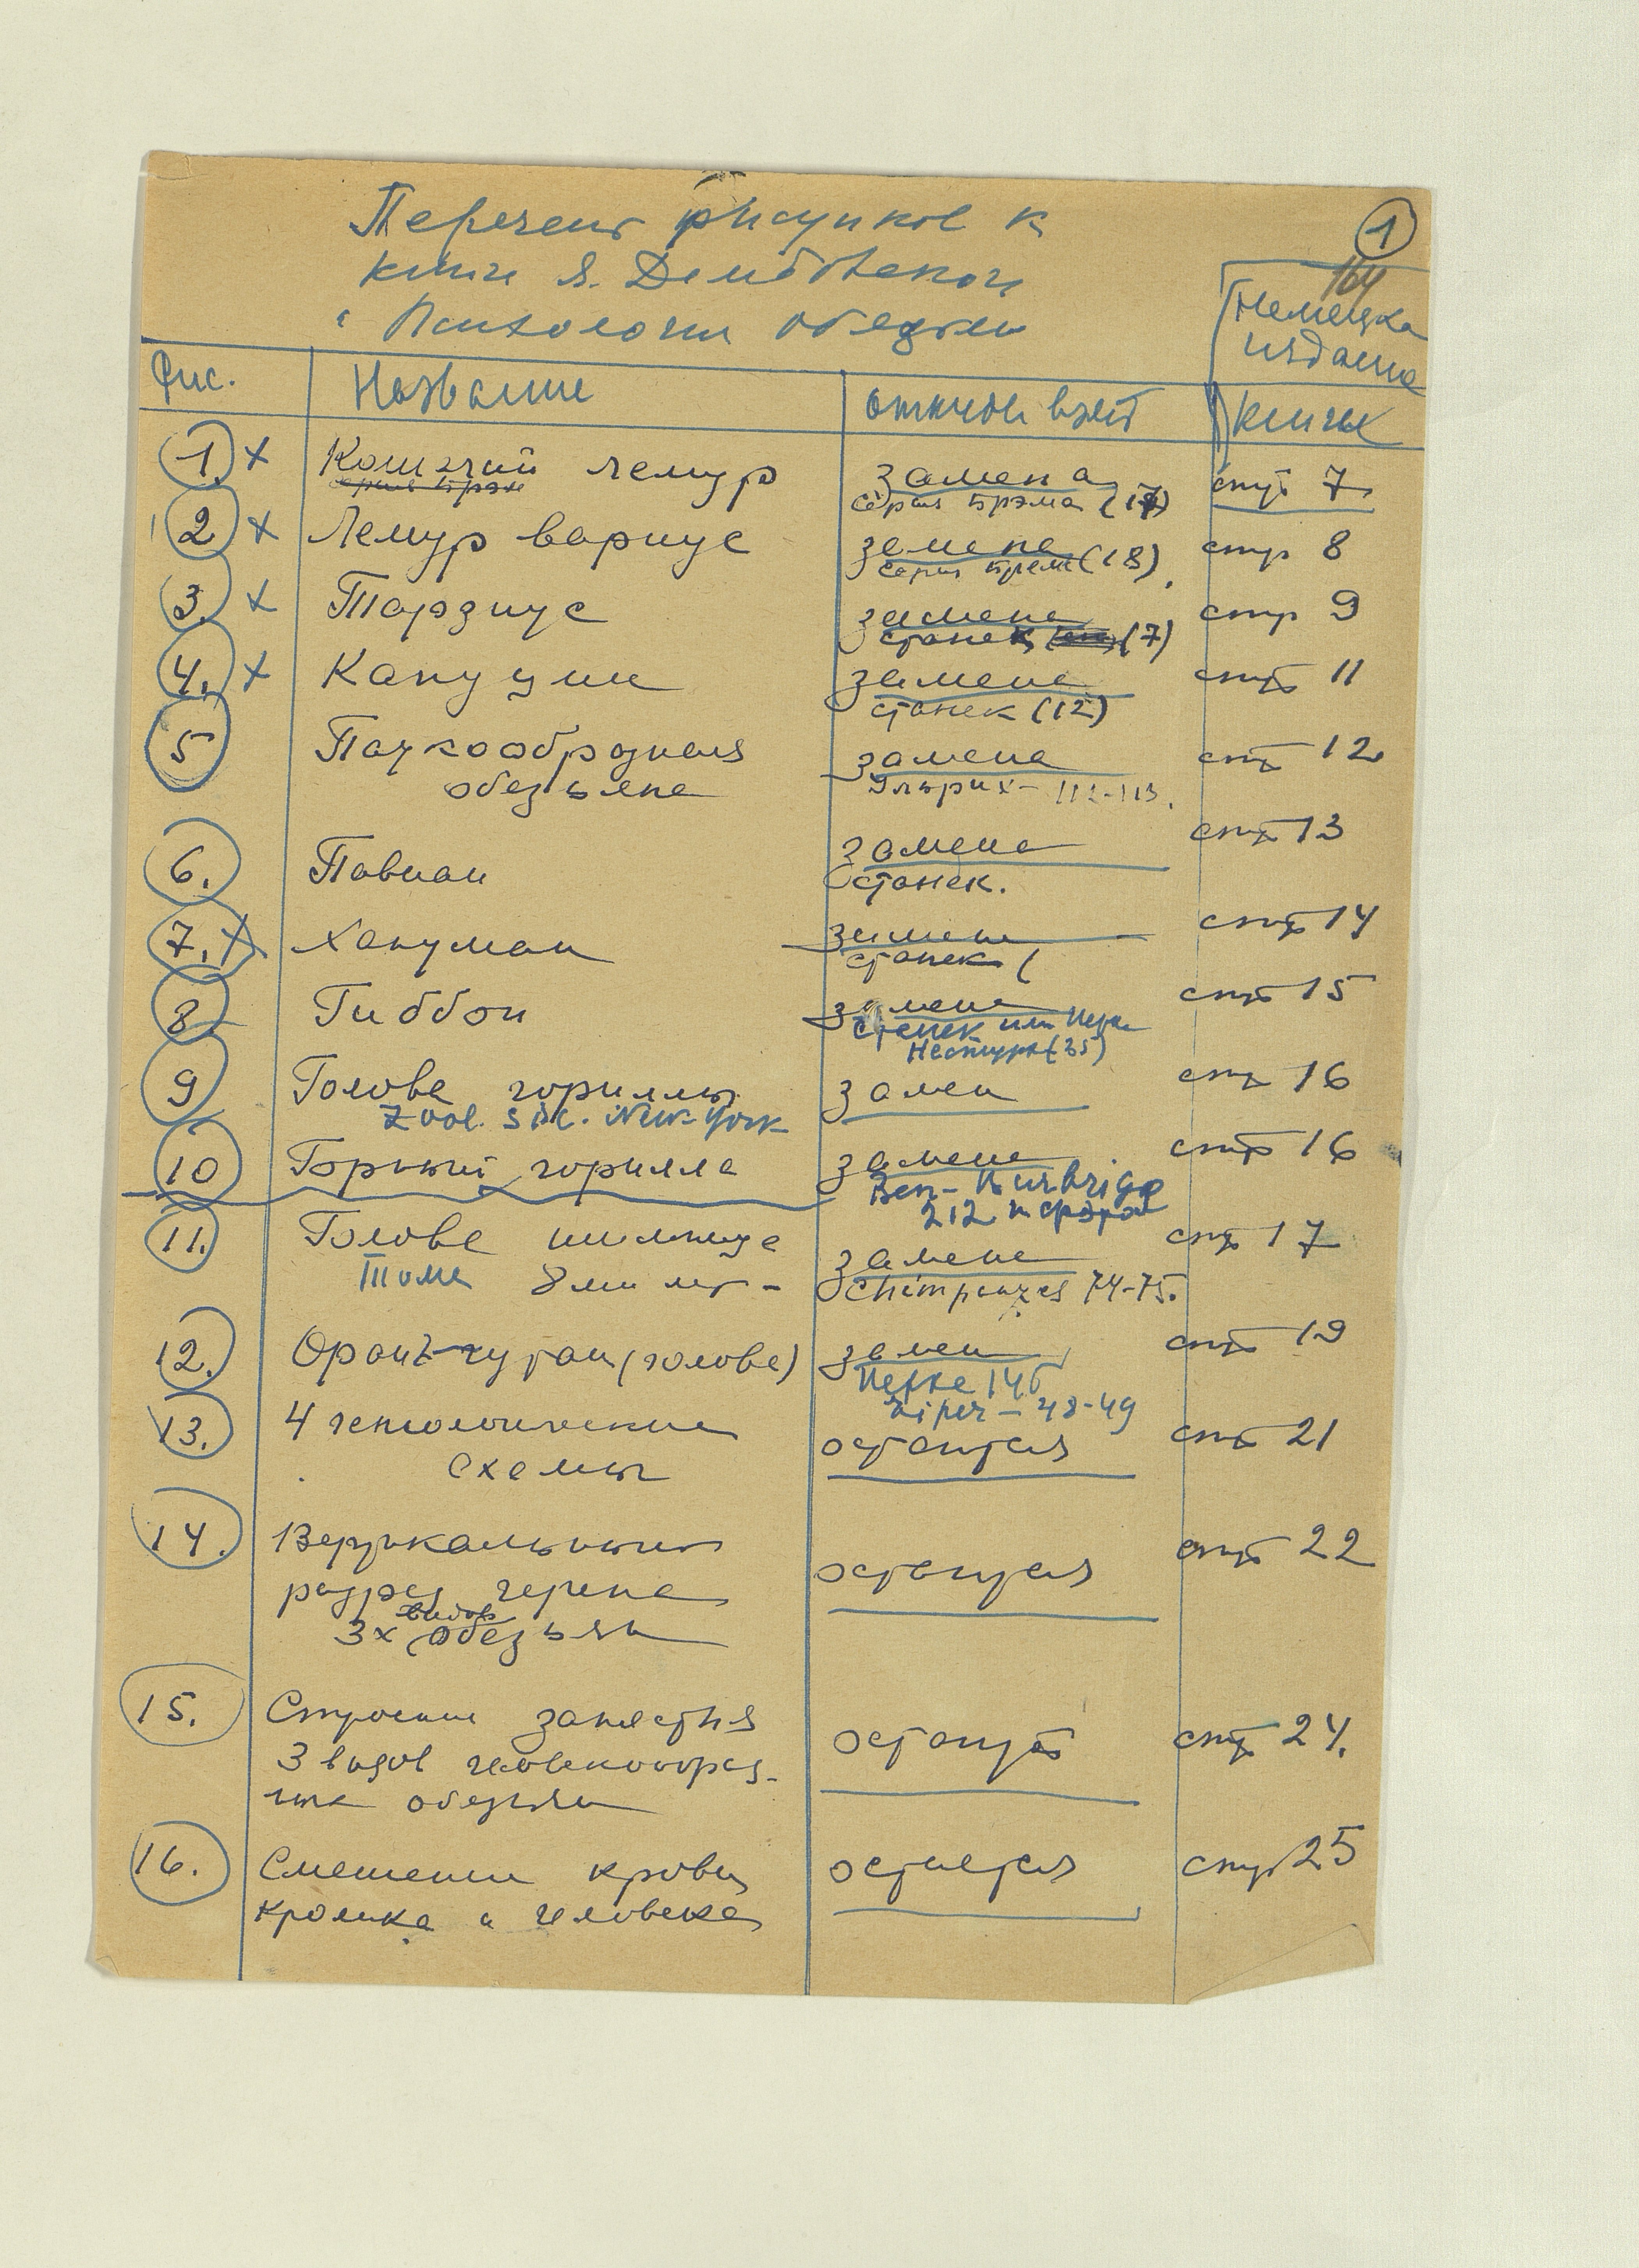 Перечень рисунков к
книге Я. Дембовского
"Психология обезьян
1
164
Немецкое
издание
Фис. Название откуда взят книги
1. x Кошачий лемур замена стр 7
серия Брэма
серия Брэма (17)
2 x Лемур вариус замена стр 8
серия Брема (18)
3. x Тарзиус замена стр 9
Станек (7)
4. x Капуцин замена стр 11
Станек (12)
5 Паукообразная замена стр 12
обезьяна Ульрих - 112-113.
6. Павиан замена стр 13
Станек.
7. x Хануман замена стр 14
Станек (
8. Гиббон замена стр 15
Станек или
Нестурх (35)
9 Голова гориллы замен стр 16
Zool. Soc. New-York
10 Горный горилла замена стр 16
Ben-Burbridge
212
11. Голова шимпанзе замена стр 17
Тома 8ми лет - Chimpanzes 74-75.
12. Оранг-гутан (голова) замен стр 19
Йеркс 146
48-49
13. 4 генеалогические остаются стр 21
схемы
14. Вертикальный остаются стр 22
разрез черепа
видов
3х обезьян
15. Строение запястья остаются стр 24.
3 видов человекообраз-
ных обезьян
16. Смешение крови остается стр 25
кролика и человека